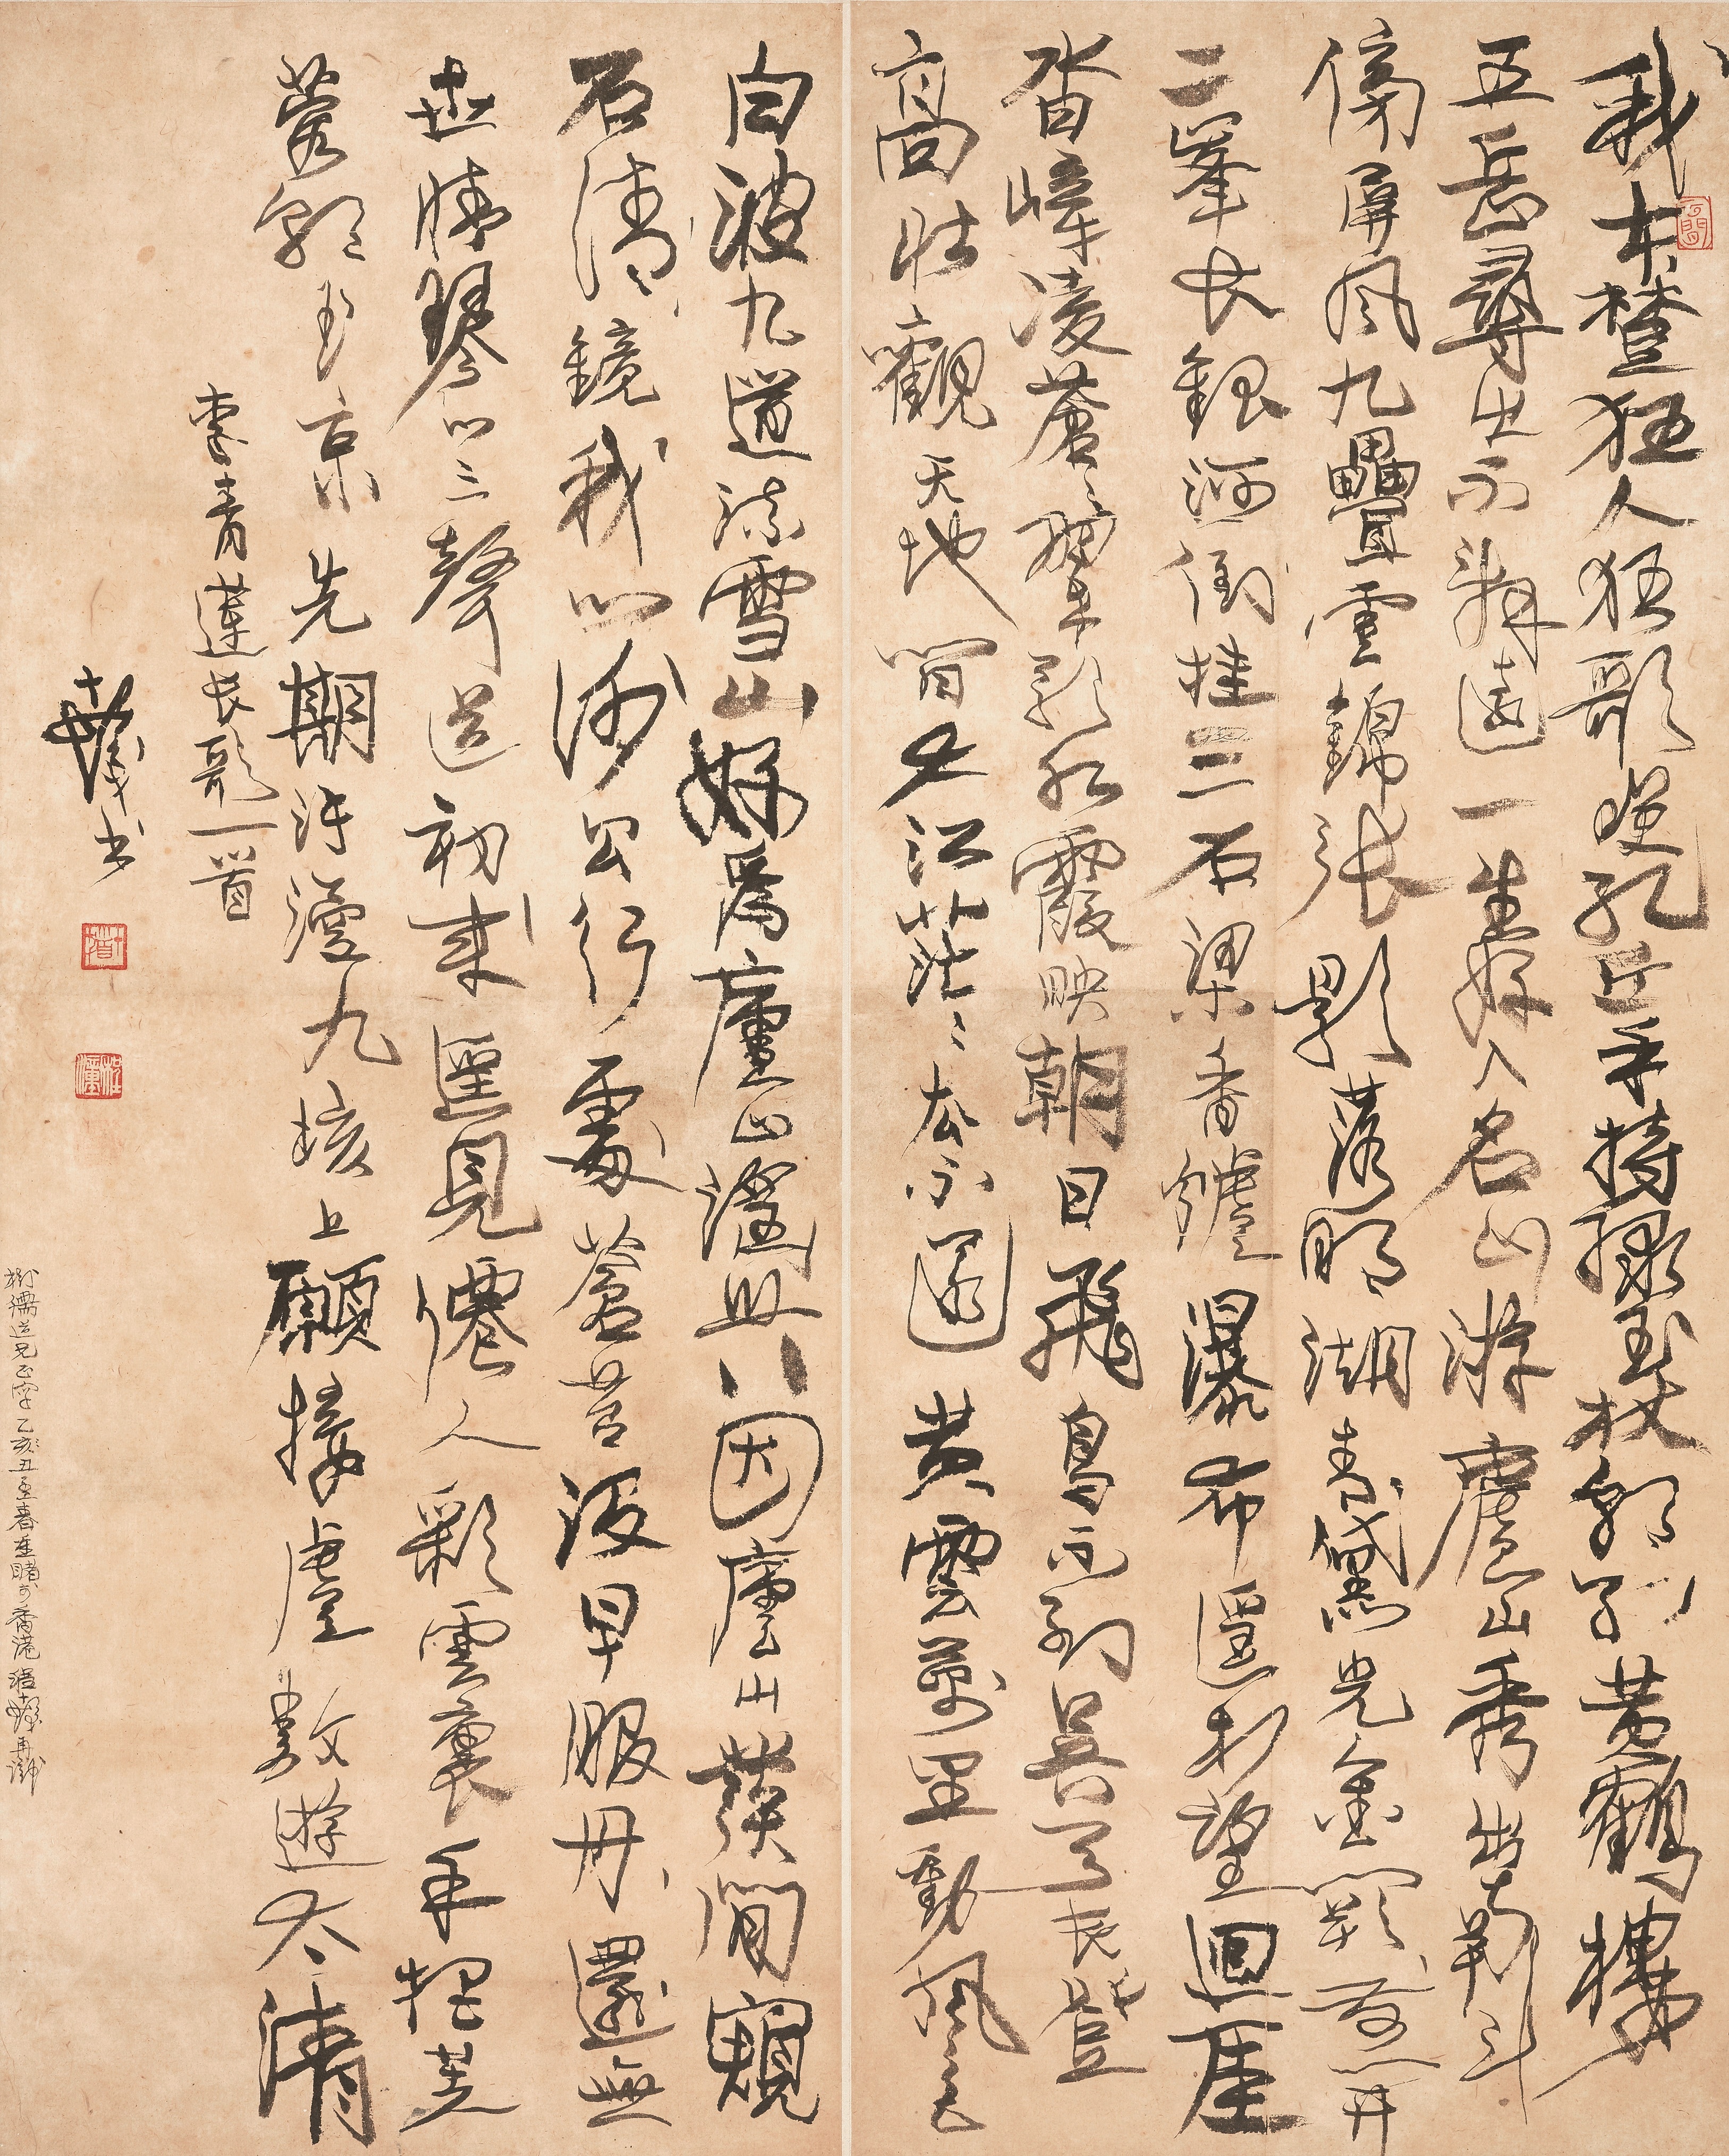 我本楚狂人狂歌笑孔丘手持綠玉杖朝別黃鶴樓
五岳尋仙不辭遠一生好入名山游廬山秀出南斗
傍屏風九疊雲錦張影落明湖青黛光金闕前開
二峯長銀河倒挂三石梁香爐瀑布遙相望迴崖
沓嶂凌蒼〻翠影紅霞映朝日飛鳥不到吳天長登
高壯觀天地間大江茫〻去不還黃雲萬里動風色
白波九道流雪山好爲廬山謠興因廬山發閒窺
石清鏡我心謝公行處蒼苔沒早服丹還無
世情琴心三聲道初成遙見僊人彩雲裏手把芙
蓉朝玉京先期汗漫九垓上願接盧敖遊太清
李青蓮長歌一首
書
道兄正字乙亥香港再識